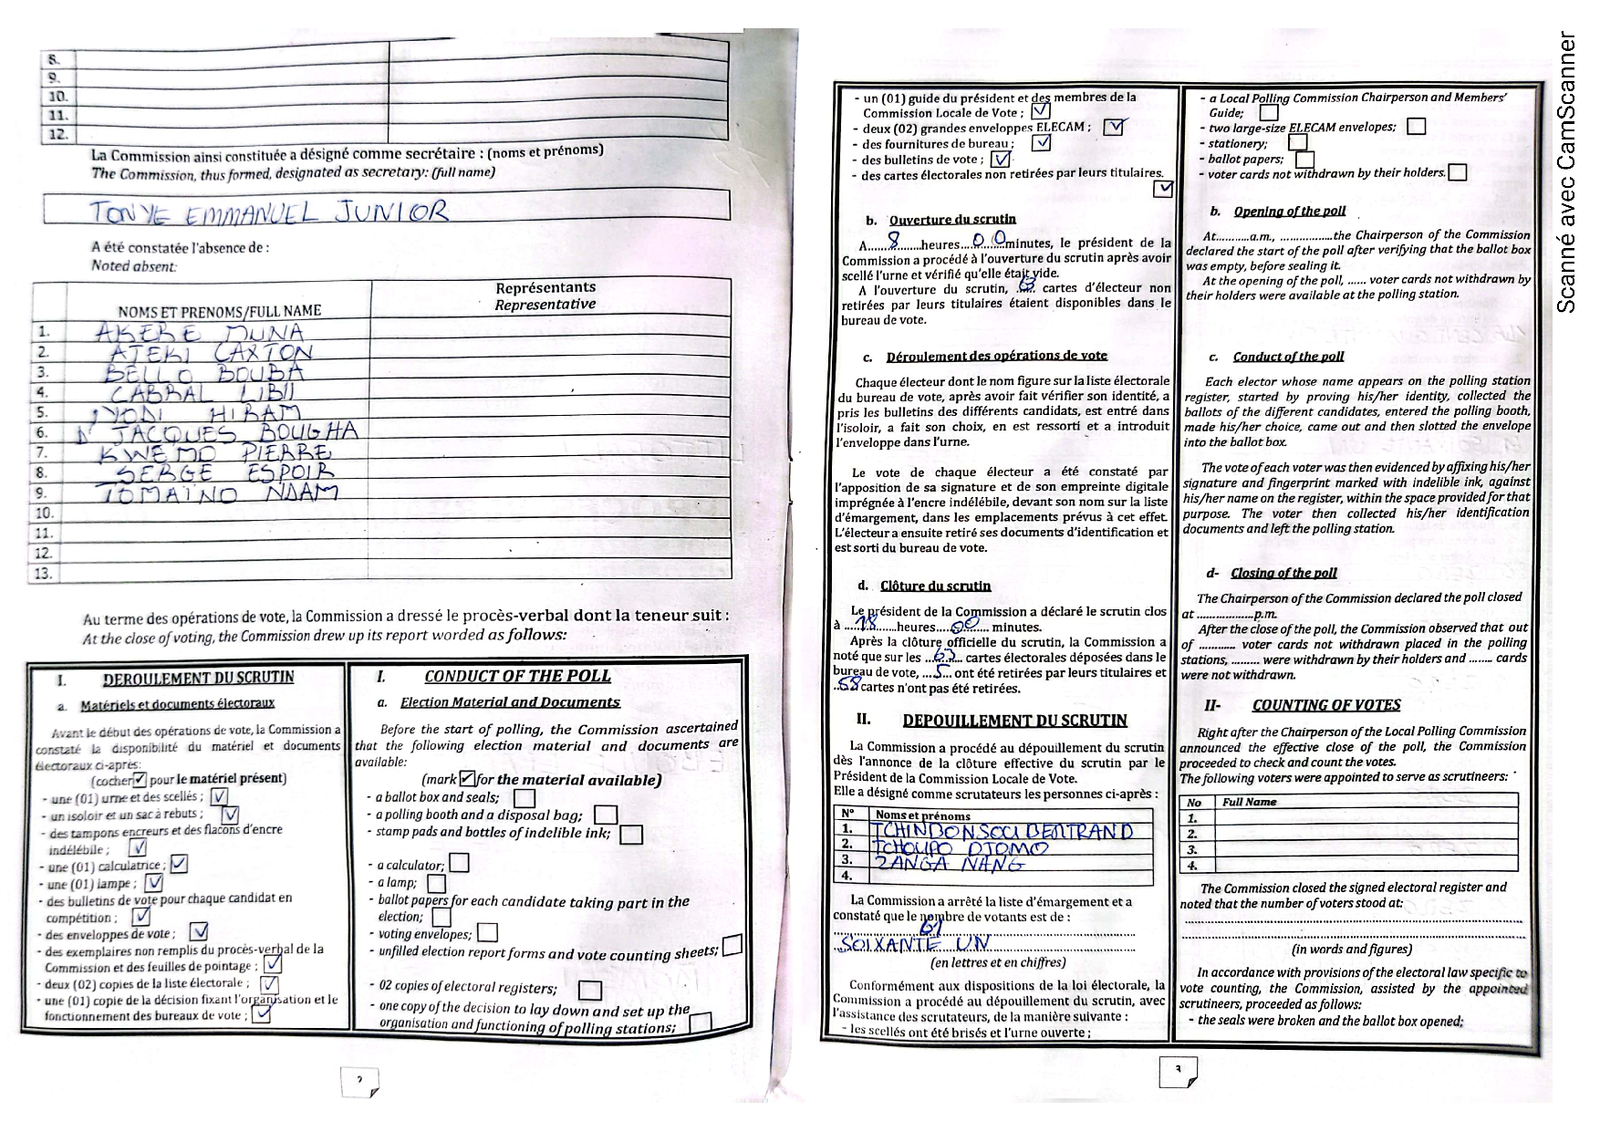 8.
9.
10.
11.
12.
La Commission ainsi constituée a désigné comme secrétaire : (noms et prénoms)
The Commission, thus formed, designated as secretary: (full name)
TONYE EMMANUEL JUNIOR
A été constatée l'absence de :
Noted absent:
NOMS ET PRENOMS/FULL NAME
Représentants
Representative
1. AKERE MUNA
2. ATEKI CAXTON
3. BELLO BOUBA
4. CABRAL LIBII
5. IYODI HIRAM
6. JACQUES BOUGHA
7. KWEMO PIERRE
8. SERGE ESPOIR
9. TOMAÏNO NDAM
10.
11.
12.
13.
Au terme des opérations de vote, la Commission a dressé le procès-verbal dont la teneur suit :
At the close of voting, the Commission drew up its report worded as follows:
I. DEROULEMENT DU SCRUTIN
a. Matériels et documents électoraux
Avant le début des opérations de vote, la Commission a
constaté la disponibilité du matériel et documents
électoraux ci-après:
(cocher ✓ pour le matériel présent)
- une (01) urne et des scellés ; ✓
- un isoloir et un sac à rebuts ; ✓
- des tampons encreurs et des flacons d'encre
indélébile ; ✓
- une (01) calculatrice ; ✓
- une (01) lampe ; ✓
- des bulletins de vote pour chaque candidat en
compétition ; ✓
- des enveloppes de vote ; ✓
- des exemplaires non remplis du procès-verbal de la
Commission et des feuilles de pointage ; ✓
- deux (02) copies de la liste électorale ; ✓
- une (01) copie de la décision fixant l'organisation et le
fonctionnement des bureaux de vote ; ✓
I. CONDUCT OF THE POLL
a. Election Material and Documents
Before the start of polling, the Commission ascertained
that the following election material and documents are
available:
(mark ✓ for the material available)
- a ballot box and seals;
- a polling booth and a disposal bag;
- stamp pads and bottles of indelible ink;
- a calculator;
- a lamp;
- ballot papers for each candidate taking part in the
election;
- voting envelopes;
- unfilled election report forms and vote counting sheets;
- 02 copies of electoral registers;
- one copy of the decision to lay down and set up the
organisation and functioning of polling stations;
2
- un (01) guide du président et des membres de la
Commission Locale de Vote ; ✓
- deux (02) grandes enveloppes ELECAM ; ✓
- des fournitures de bureau ; ✓
- des bulletins de vote ; ✓
- des cartes électorales non retirées par leurs titulaires. ✓
b. Ouverture du scrutin
A.......8......heures....00....minutes, le président de la
Commission a procédé à l'ouverture du scrutin après avoir
scellé l'urne et vérifié qu'elle était vide.
A l'ouverture du scrutin, ..63.. cartes d'électeur non
retirées par leurs titulaires étaient disponibles dans le
bureau de vote.
c. Déroulement des opérations de vote
Chaque électeur dont le nom figure sur la liste électorale
du bureau de vote, après avoir fait vérifier son identité, a
pris les bulletins des différents candidats, est entré dans
l'isoloir, a fait son choix, en est ressorti et a introduit
l'enveloppe dans l'urne.
Le vote de chaque électeur a été constaté par
l'apposition de sa signature et de son empreinte digitale
imprégnée à l'encre indélébile, devant son nom sur la liste
d'émargement, dans les emplacements prévus à cet effet.
L'électeur a ensuite retiré ses documents d'identification et
est sorti du bureau de vote.
d. Clôture du scrutin
Le président de la Commission a déclaré le scrutin clos
à ....18....heures....00....... minutes.
Après la clôture officielle du scrutin, la Commission a
noté que sur les ...63... cartes électorales déposées dans le
bureau de vote, ...5... ont été retirées par leurs titulaires et
..58 cartes n'ont pas été retirées.
II. DEPOUILLEMENT DU SCRUTIN
La Commission a procédé au dépouillement du scrutin
dès l'annonce de la clôture effective du scrutin par le
Président de la Commission Locale de Vote.
Elle a désigné comme scrutateurs les personnes ci-après :
N° Noms et prénoms
1. TCHINDONSOU BERTRAND
2. TCHOUPO DJOMO
3. ZANGA NANG
4.
La Commission a arrêté la liste d'émargement et a
constaté que le nombre de votants est de :
61
SOIXANTE UN
(en lettres et en chiffres)
Conformément aux dispositions de la loi électorale, la
Commission a procédé au dépouillement du scrutin, avec
l'assistance des scrutateurs, de la manière suivante :
- les scellés ont été brisés et l'urne ouverte ;
- a Local Polling Commission Chairperson and Members'
Guide;
- two large-size ELECAM envelopes;
- stationery;
- ballot papers;
- voter cards not withdrawn by their holders.
b. Opening of the poll
At..........a.m., ................the Chairperson of the Commission
declared the start of the poll after verifying that the ballot box
was empty, before sealing it.
At the opening of the poll, ...... voter cards not withdrawn by
their holders were available at the polling station.
c. Conduct of the poll
Each elector whose name appears on the polling station
register, started by proving his/her identity, collected the
ballots of the different candidates, entered the polling booth,
made his/her choice, came out and then slotted the envelope
into the ballot box.
The vote of each voter was then evidenced by affixing his/her
signature and fingerprint marked with indelible ink, against
his/her name on the register, within the space provided for that
purpose. The voter then collected his/her identification
documents and left the polling station.
d- Closing of the poll
The Chairperson of the Commission declared the poll closed
at .................p.m.
After the close of the poll, the Commission observed that out
of ........... voter cards not withdrawn placed in the polling
stations, ......... were withdrawn by their holders and ........ cards
were not withdrawn.
II- COUNTING OF VOTES
Right after the Chairperson of the Local Polling Commission
announced the effective close of the poll, the Commission
proceeded to check and count the votes.
The following voters were appointed to serve as scrutineers:
No Full Name
1.
2.
3.
4.
The Commission closed the signed electoral register and
noted that the number of voters stood at:
(in words and figures)
In accordance with provisions of the electoral law specific to
vote counting, the Commission, assisted by the appointed
scrutineers, proceeded as follows:
- the seals were broken and the ballot box opened;
3
Scanné avec CamScanner